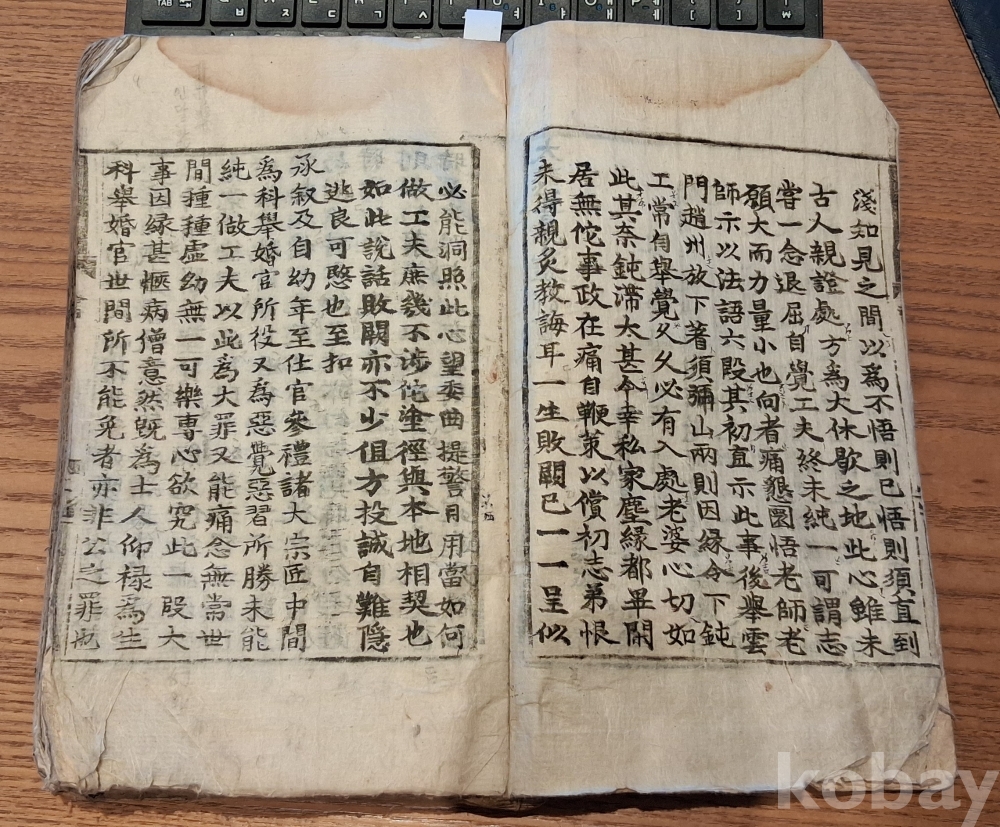 淺知見之間以爲不悟則已悟則須直到
古人親證處方爲大休歇之地此心雖未
嘗一念退屈自覺工夫終未純一可謂志
願大而力量小也向者痛懇圜悟老師老
師示以法語六段其初直示此事後舉雲
門趙州放下著須彌山兩則因緣令下鈍
工常自舉覺久久必有入處老婆心切如
此其奈鈍滯太甚今幸私家塵緣都畢閑
居無佗事政在痛自鞭策以償初志弟恨
未得親炙教誨耳一生敗闕已一一呈似
必能洞照此心望委曲提警日用當如何
做工夫庶幾不涉佗塗徑與本地相契也
如此說話敗闕亦不少但方投誠自難隱
逃良可愍也至扣
承叙及自幼年至仕官參禮諸大宗匠中間
爲科舉婚官所役又爲惡覺惡習所勝未能
純一做工夫以此爲大罪又能痛念無常世
間種種虛幻無一可樂專心欲究此一段大
事因緣甚愜病僧意然旣爲士人仰祿爲生
科舉婚官世間所不能免者亦非公之罪也
kobay
TAB